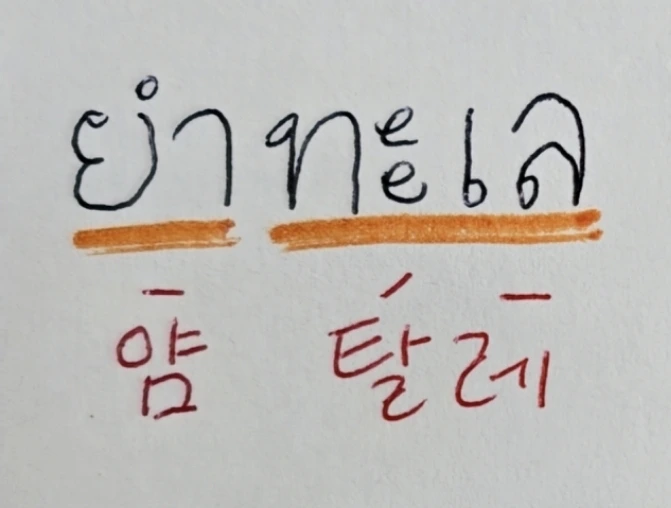 ยำทะเล
얌 탈레